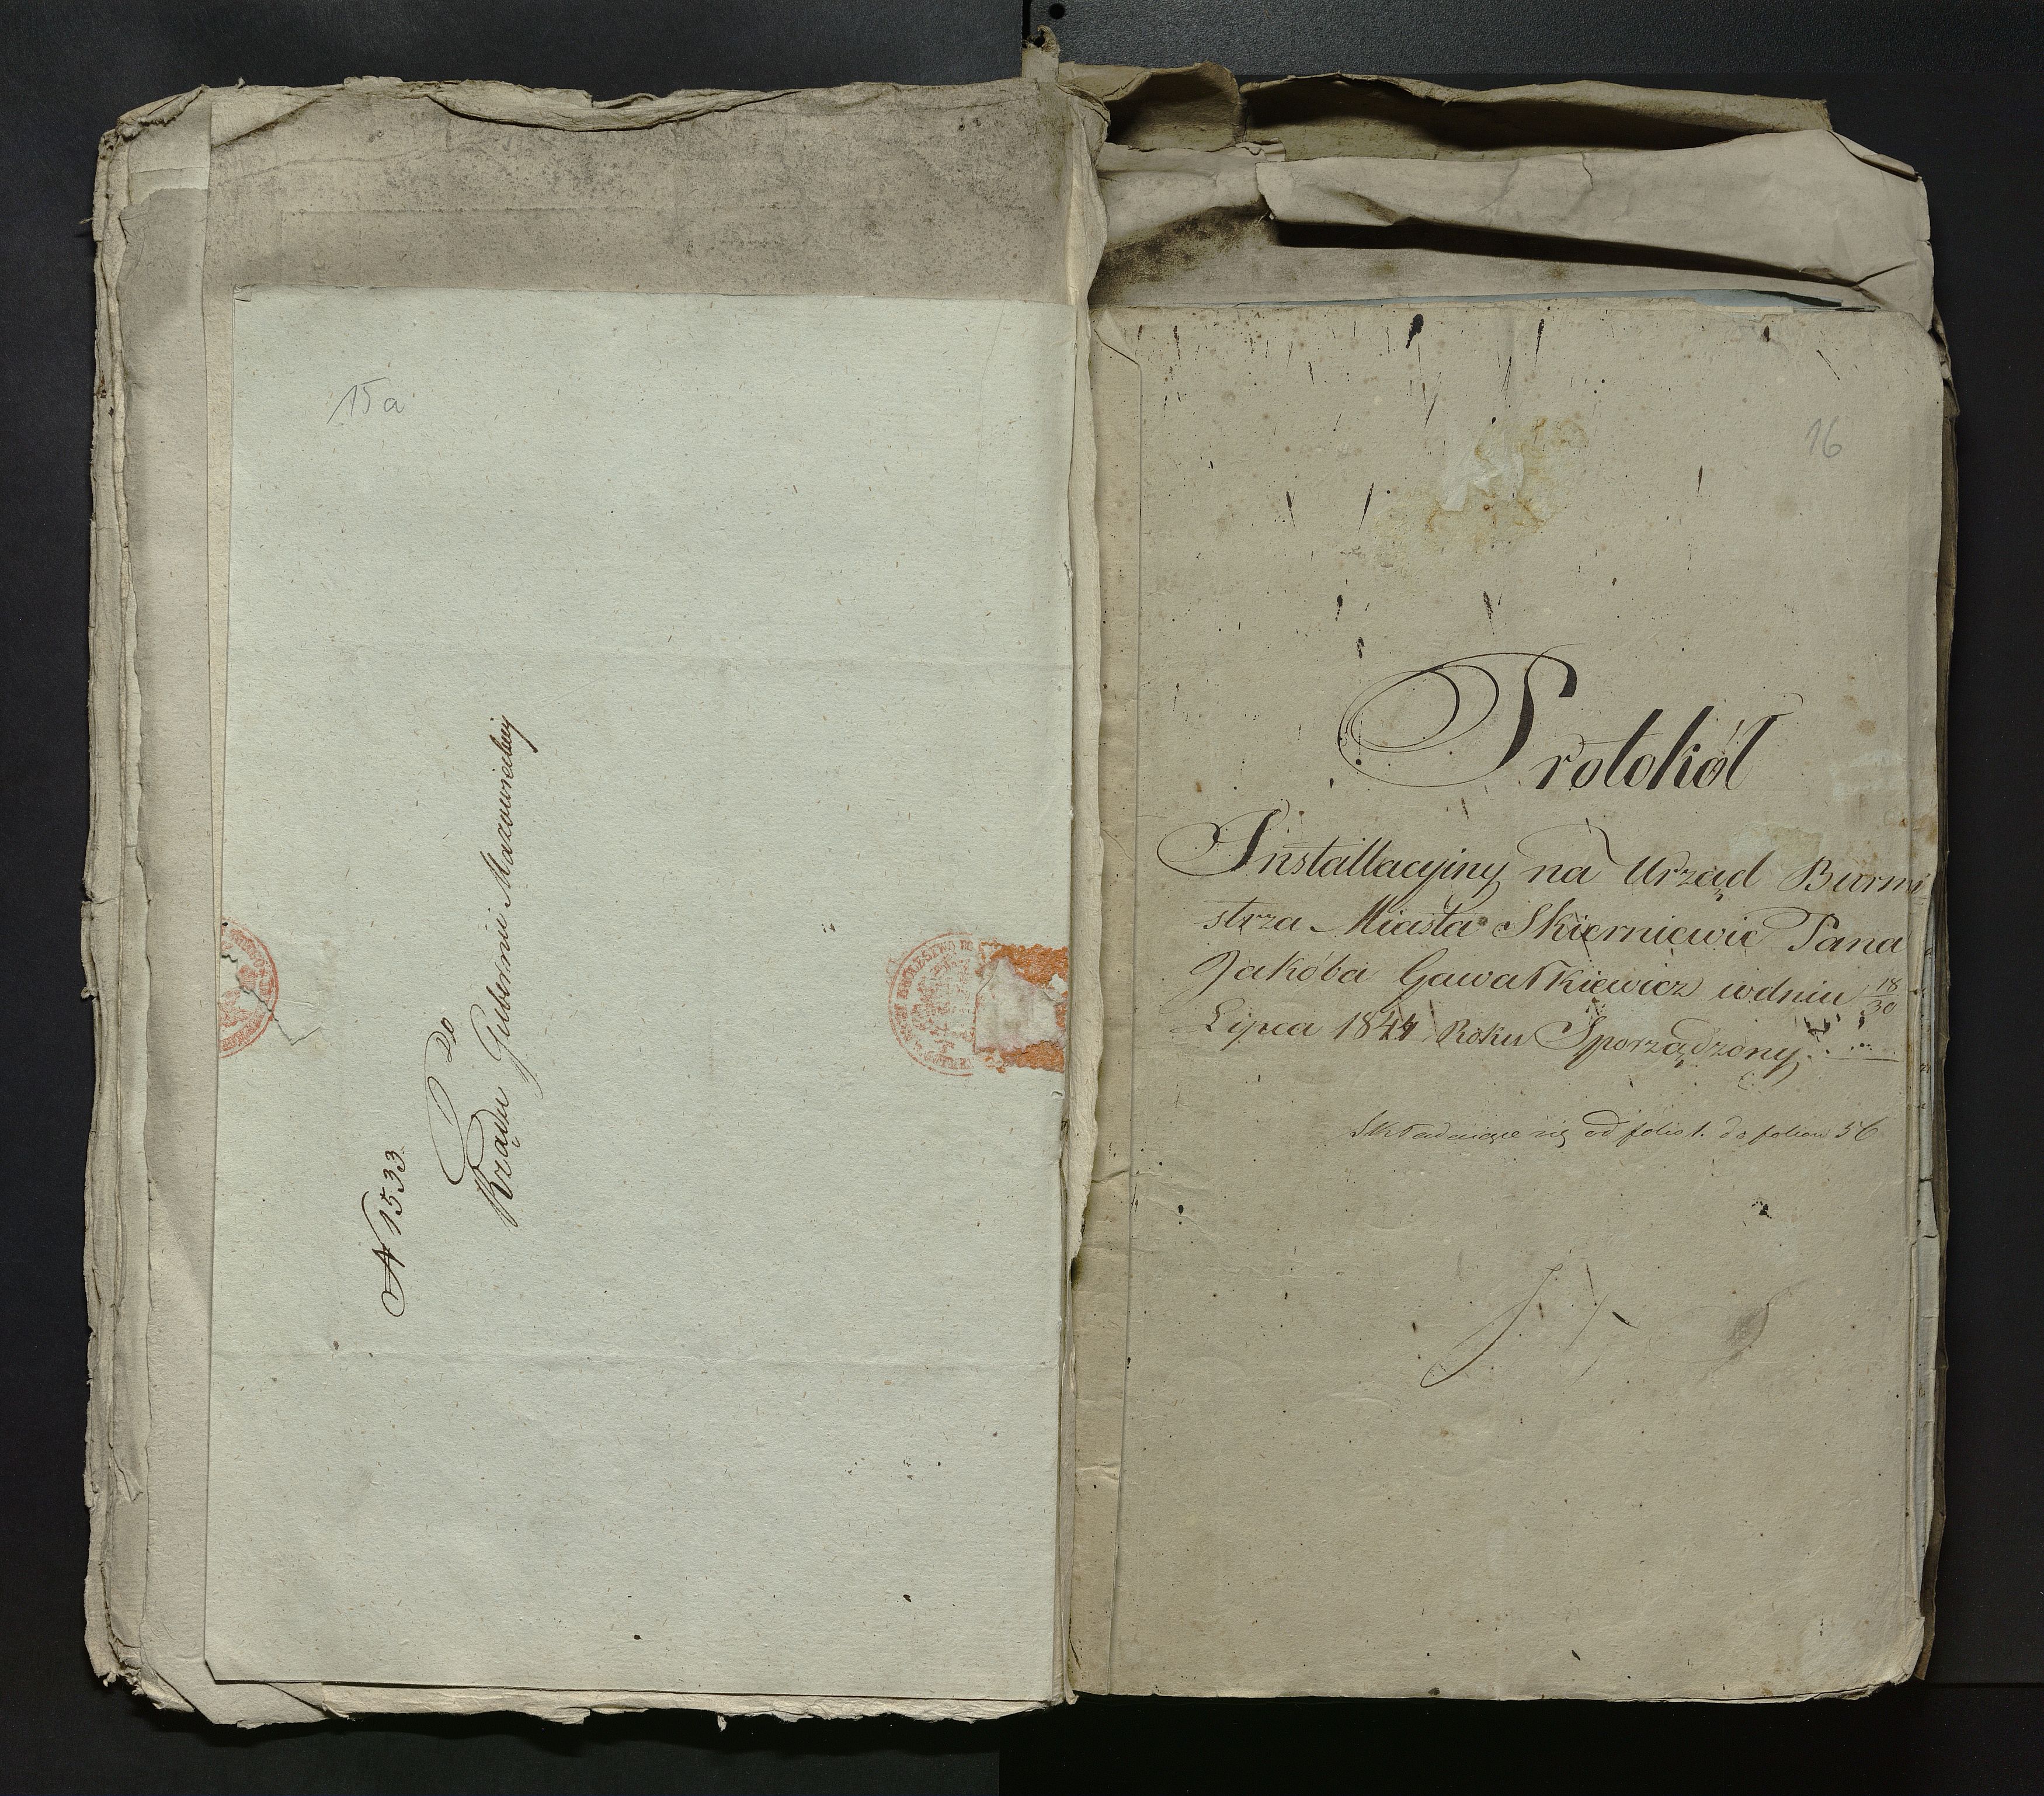 15a
N 1533
Do
Rządu Gubernii Mazowieckiej
16
Protokół
Installacyiny na Urząd Burmi
strza Miasta Skierniewic Pana
Jakóba Gawałkiewicz wdniu 18/30
Lipca 1844 Roku Sporządzony.
Składaiące się od folio 1. do folion 56